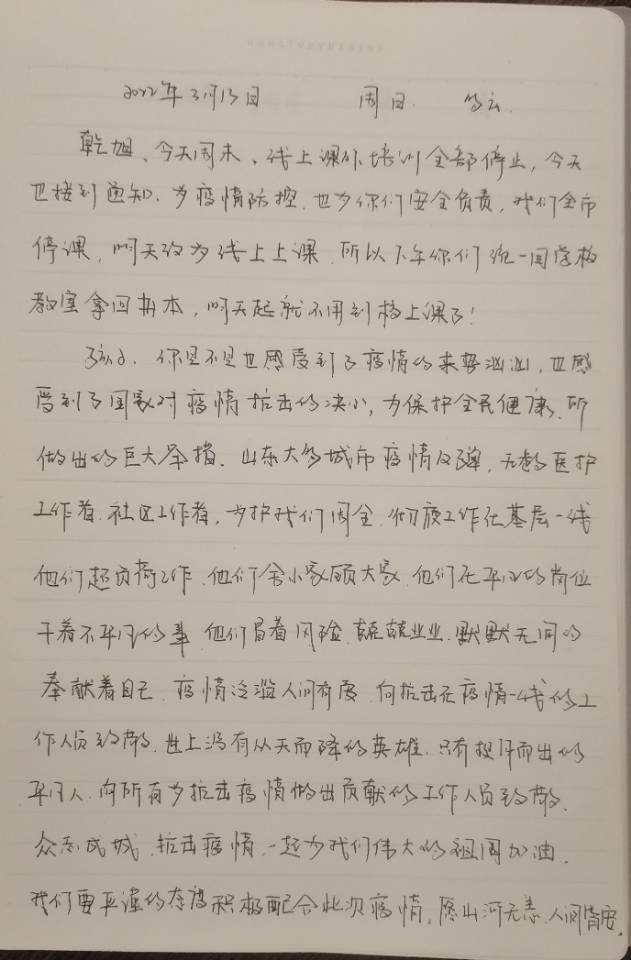 2022年3月13日 周日 多云
乾旭、今天周末、线上课外培训全部停止,今天
也接到通知.为疫情防控.也为你们安全负责,我们全市
停课,明天改为线上上课.所以下午你们统一回学校
教室拿回书本,明天起就不用到校上课了!
孩子、你是不是也感受到了疫情的来势汹汹,也感
受到了国家对疫情抗击的决心,为保护全民健康.所
做出的巨大举措.山东大多城市疫情反弹,无数医护
工作者.社区工作者,为护我们周全.彻夜工作在基层一线
他们超负荷工作.他们舍小家顾大家.他们在平凡的岗位
干着不平凡的事.他们冒着风险.兢兢业业.默默无闻的
奉献着自己.疫情泛滥人间有爱.向抗击在疫情一线的工
作人员致敬.世上没有从天而降的英雄.只有挺身而出的
平凡人.向所有为抗击疫情做出贡献的工作人员致敬.
众志成城.抗击疫情.一起为我们伟大的祖国加油.
我们要严谨的态度积极配合此次疫情,愿山河无恙.人间皆安.